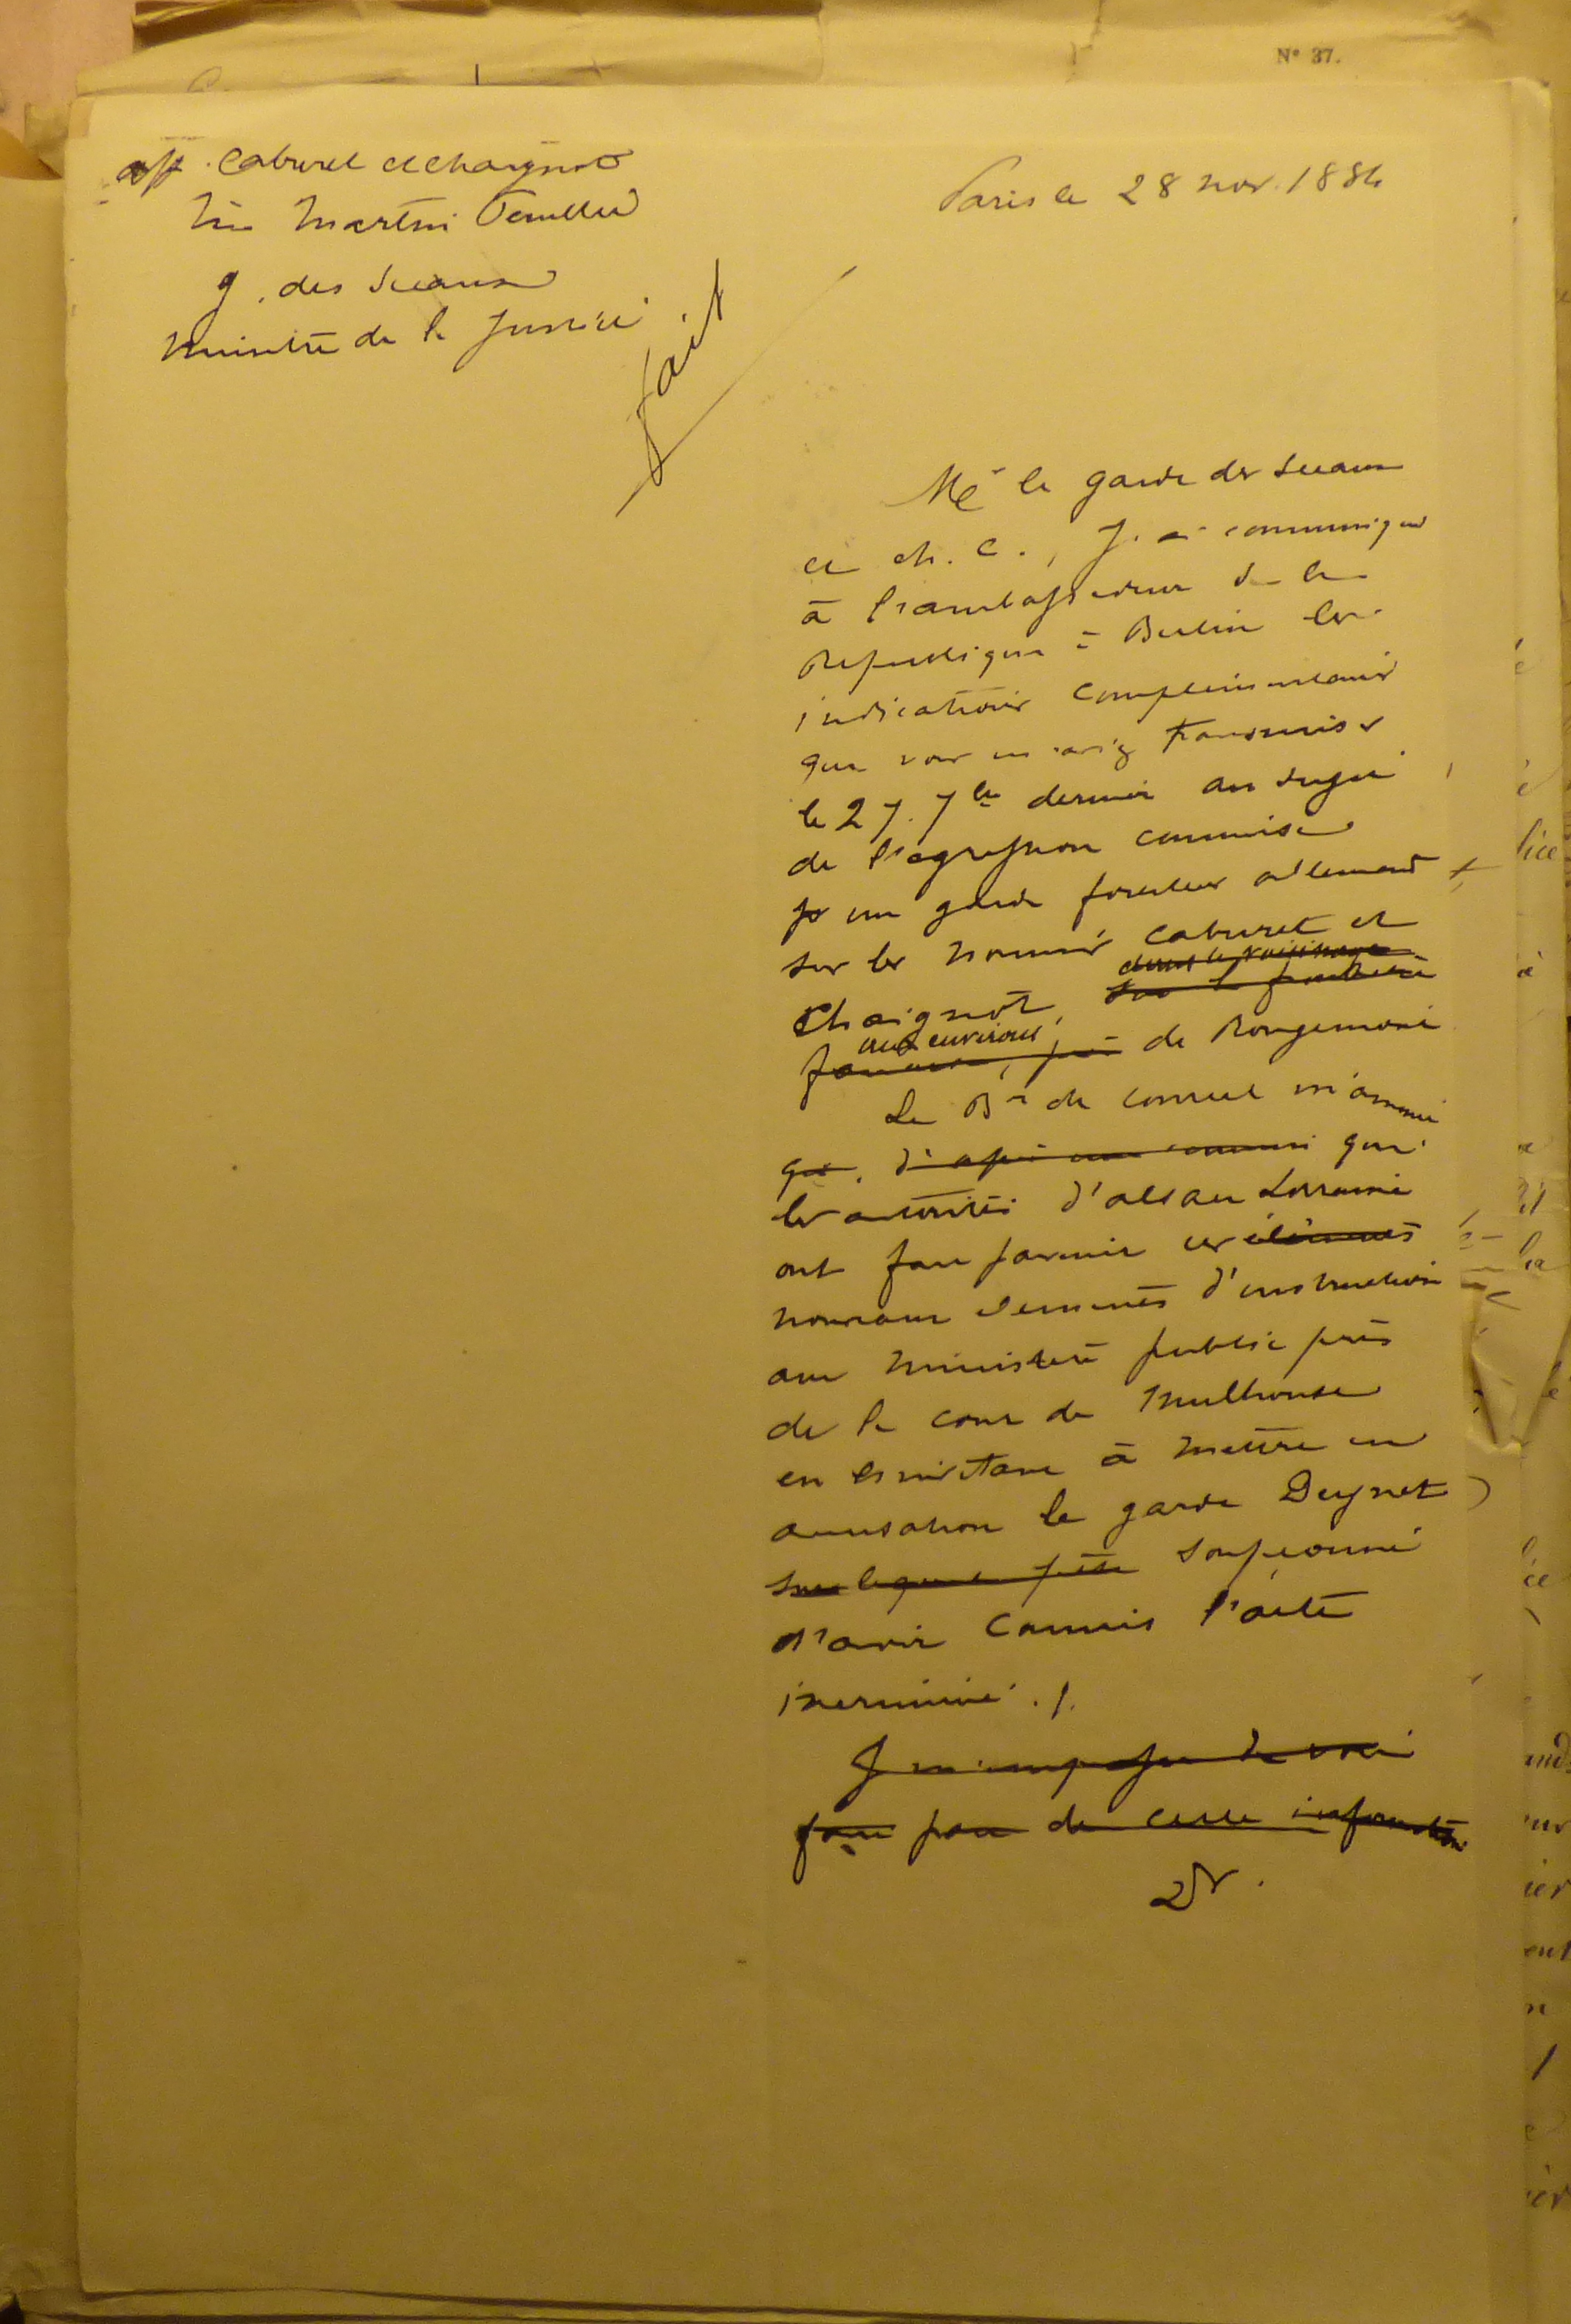 N° 37.
aff. Caburet et Chaignot
Mr Martin Feuillée
g. des Sceaux
Ministre de la Justice
fait
Paris le 28 nov. 1884
Mr le garde des Sceaux
et ch. C., J'ai communiqué
à l'ambassadeur de la
République à Berlin les
indications complémentaires
que vous m'aviez transmises
le 27 7bre dernier au sujet
de l'agression commise
par un garde forestier allemand
sur les nommés Caburet et
dans le voisinage
Chaignot, sur la frontière
aux environs
française, près de Rougemont
Le Bon de Courcel m'annonce
que, d'après une communi que
les autorités d'Alsace Lorraine
ont fait parvenir ces éléments
nouveaux éléments d'instruction
au Ministère public près
de la cour de Mulhouse
en l'invitant à mettre en
accusation le garde Deynet
sur lequel pèse soupçonné
d'avoir commis l'acte
incriminé ./.
Je m'empresse de vous
faire part de cette information